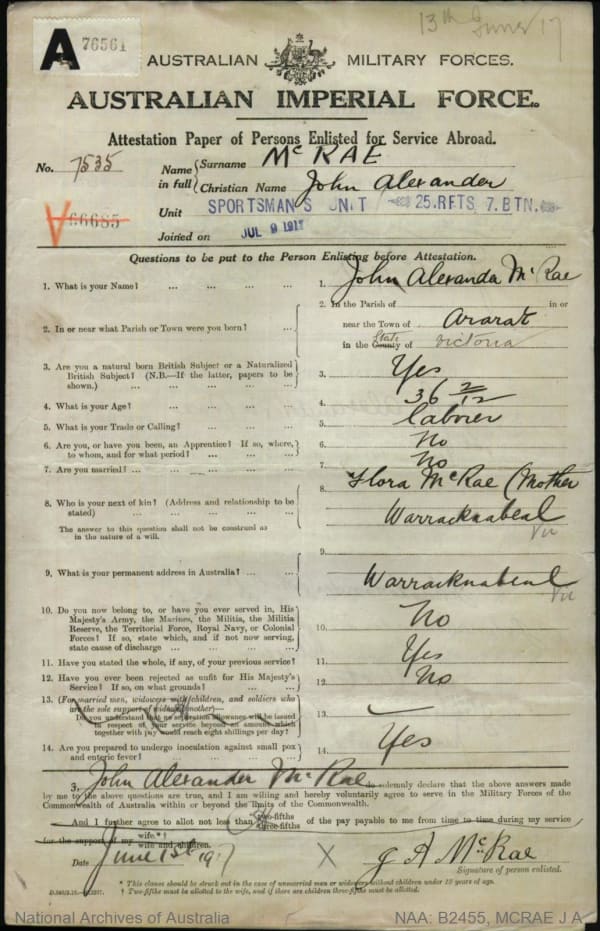 13th June 17
A 76561
AUSTRALIAN MILITARY FORCES.
AUSTRALIAN IMPERIAL FORCE.
Attestation Paper of Persons Enlisted for Service Abroad.
No. 7535 Name in full { Surname McRAE
Christian Name John Alexander
V66685
Unit SPORTSMAN'S UNIT 25.RFTS 7.BTN.
Joined on JUL 9 1917
Questions to be put to the Person Enlisting before Attestation.
1. What is your Name? ... ... ... 1. John Alexander McRae
2. In or near what Parish or Town were you born? ... 2. In the Parish of in or
near the Town of Ararat
in the County of State Victoria
3. Are you a natural born British Subject or a Naturalized
British Subject? (N.B.—If the latter, papers to be
shown.) ... ... ... 3. Yes
4. What is your Age? ... ... ... 4. 36 2/12
5. What is your Trade or Calling? ... ... 5. laborer
6. Are you, or have you been, an Apprentice? If so, where,
to whom, and for what period? ... ... 6. No
7. Are you married? ... ... ... 7. No
8. Who is your next of kin? (Address and relationship to be
stated) ... ... ... 8. Flora McRae (Mother
Warracknabeal
Vic
The answer to this question shall not be construed as
in the nature of a will.
9. What is your permanent address in Australia? ... ... 9. Warracknabeal
Vic
10. Do you now belong to, or have you ever served in, His
Majesty's Army, the Marines, the Militia, the Militia
Reserve, the Territorial Force, Royal Navy, or Colonial
Forces? If so, state which, and if not now serving,
state cause of discharge ... ... ... 10. No
11. Have you stated the whole, if any, of your previous service? 11. Yes
12. Have you ever been rejected as unfit for His Majesty's
Service? If so, on what grounds? ... ... 12. No
13. (For married men, widowers with children, and soldiers who
are the sole support of widowed mother—
Do you understand that no separation allowance will be issued
in respect of your service beyond an amount which
together with pay would reach eight shillings per day? 13. —
14. Are you prepared to undergo inoculation against small pox
and enteric fever? ... ... ... 14. Yes
3. John Alexander McRae do solemnly declare that the above answers made
by me to the above questions are true, and I am willing and hereby voluntarily agree to serve in the Military Forces of the
Commonwealth of Australia within or beyond the limits of the Commonwealth.
And I further agree to allot not less than two-fifths three-fifths of the pay payable to me from time to time during my service
for the support of my wife.* wife and children.
Date June 1st 1917 X J A McRae
Signature of person enlisted.
* This clause should be struck out in the case of unmarried men or widowers without children under 18 years of age.
† Two-fifths must be allotted to the wife, and if there are children three-fifths must be allotted.
National Archives of Australia NAA: B2455, MCRAE J A